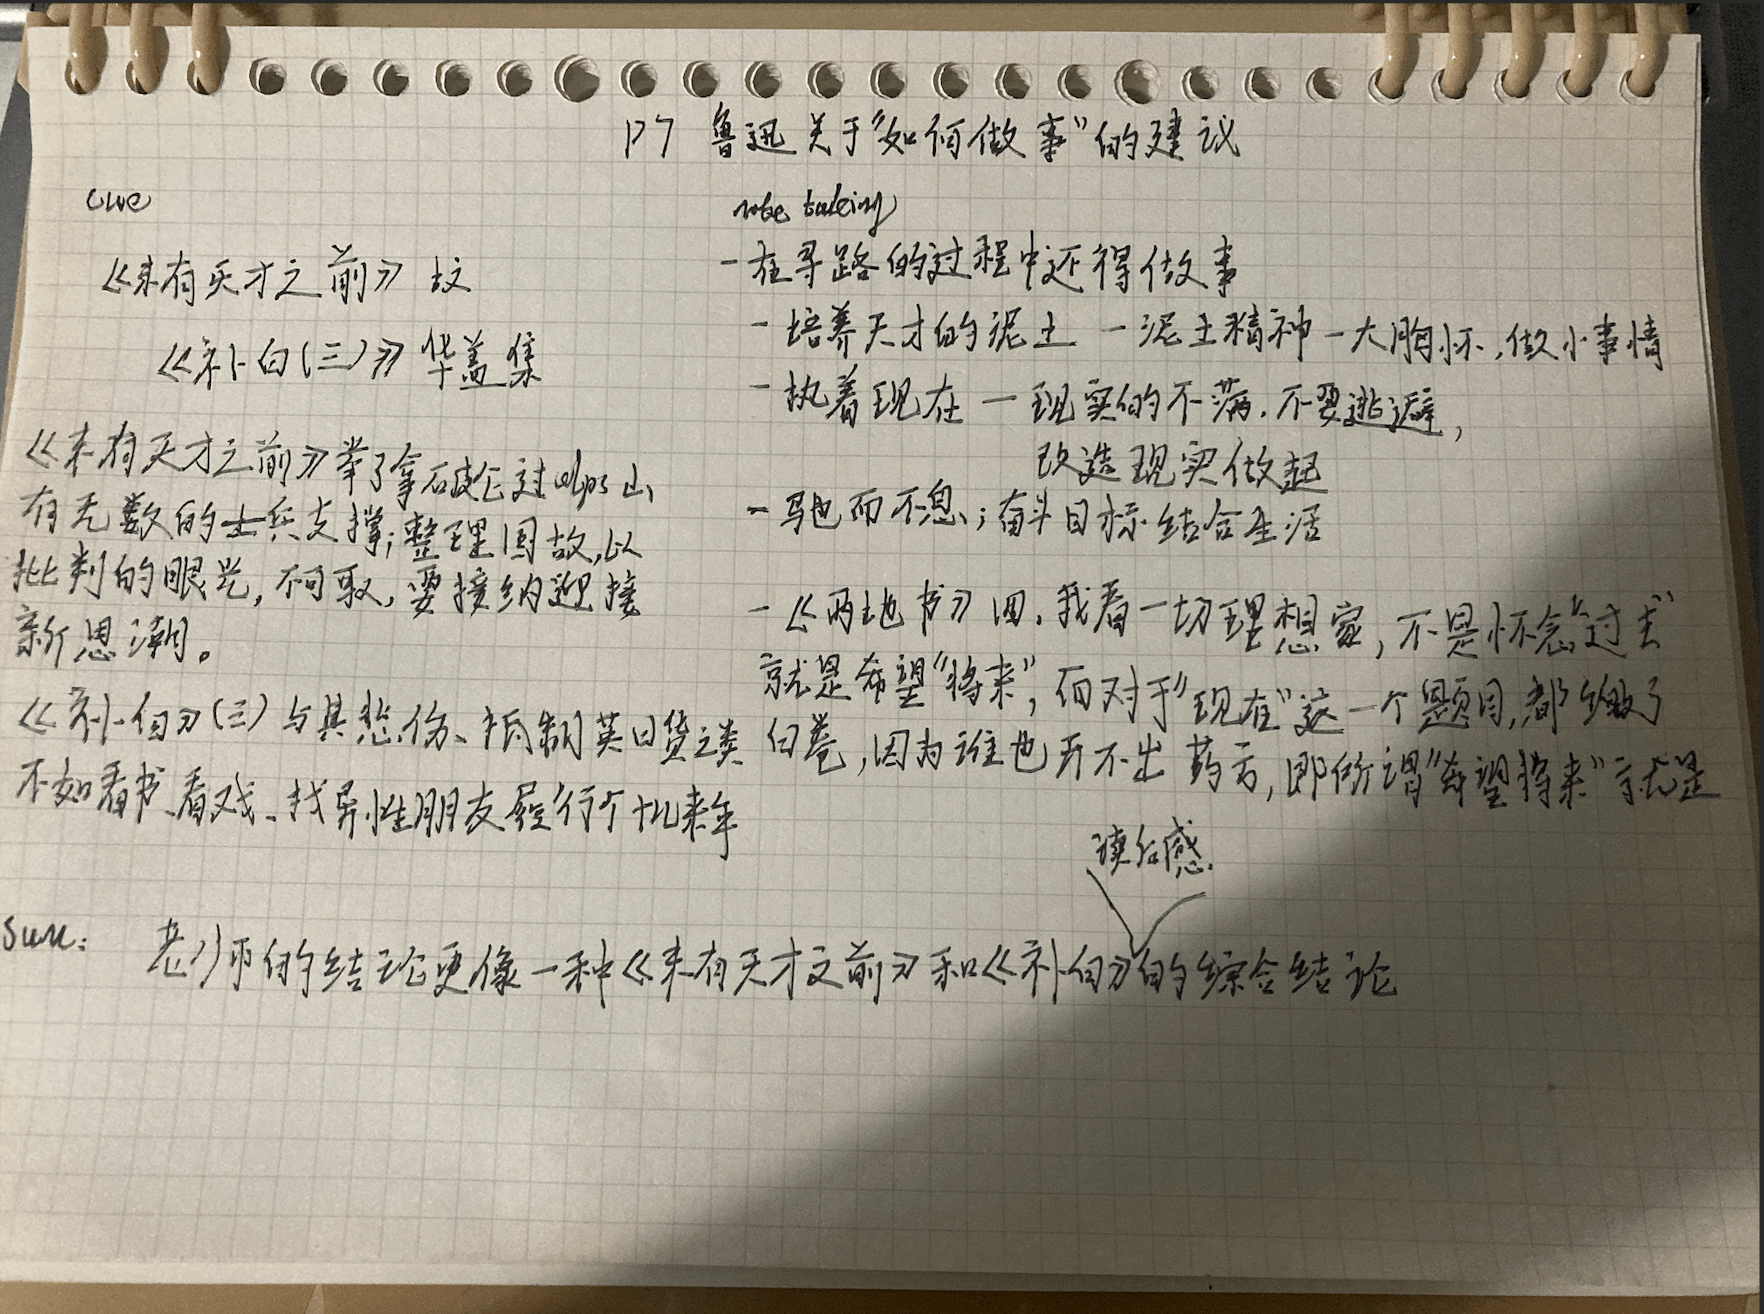 P7 鲁迅关于“如何做事”的建议
clue
《未有天才之前》坟
《补白(三)》华盖集
《未有天才之前》举了拿破仑过alps山
有无数的士兵支撑;整理国故,以
批判的眼光,不可取,要接纳迎接
新思潮。
《补白》(三)与其悲伤、抵制英日货之类
不如看书、看戏、找异性朋友 行个十几来年
note taking
-在寻路的过程中还得做事
-培养天才的泥土-泥土精神-大胸怀,做小事情
-执着现在-现实的不满.不要逃避,
改造现实做起
-驰而不息;奋斗目标结合生活
-《两地书》四,我看一切理想家,不是怀念“过去”
就是希望“将来”,而对于“现在”这一个题目,都缴了
白卷,因为谁也开不出药方,即所谓“希望将来”就是
读后感.
Sum: 老师的结论更像一种《未有天才之前》和《补白》的综合结论